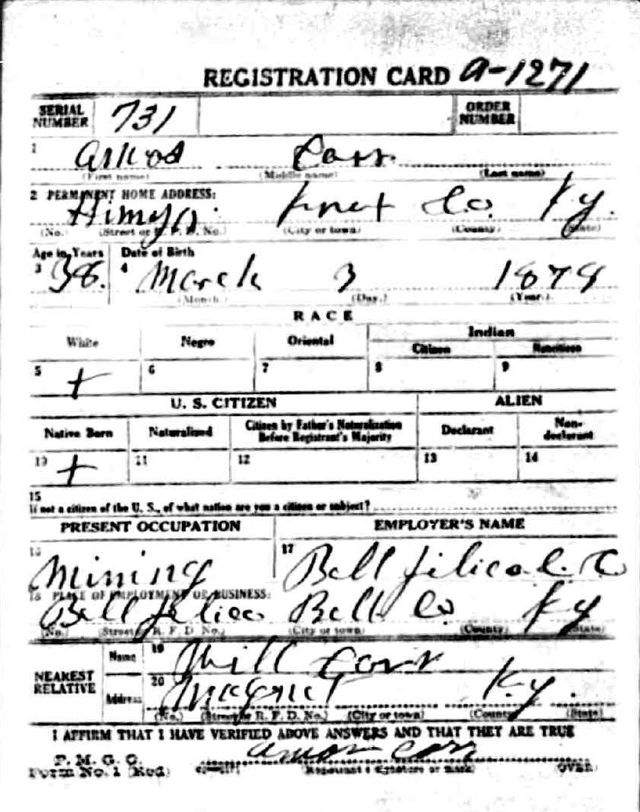 REGISTRATION CARD a-1271
SERIAL NUMBER 731 ORDER NUMBER
1 Amos Carr
(First name) (Middle name) (Last name)
2 PERMANENT HOME ADDRESS:
Knox Co. Ky.
(No.) (Street or R. F. D. No.) (City or town) (County) (State)
Age in Years Date of Birth
3 38. 4 March 3 1879
(Month.) (Day.) (Year.)
RACE
White Negro Oriental Indian
Citizen Noncitizen
5 + 6 7 8 9
U. S. CITIZEN ALIEN
Native Born Naturalized Citizen by Father's Naturalization Before Registrant's Majority Declarant Non-declarant
10 + 11 12 13 14
15
If not a citizen of the U. S., of what nation are you a citizen or subject?
PRESENT OCCUPATION EMPLOYER'S NAME
16 Mining 17 Bell Jellico C. Co
18 PLACE OF EMPLOYMENT OR BUSINESS:
Bell Jellico Bell Co. Ky
(No.) (Street or R. F. D. No.) (City or town) (County) (State)
NEAREST RELATIVE Name 19 Will Carr
Address 20 Ky.
(No.) (Street or R. F. D. No.) (City or town) (County) (State)
I AFFIRM THAT I HAVE VERIFIED ABOVE ANSWERS AND THAT THEY ARE TRUE
P. M. G. O.
Form No. 1 (Red) Amos Carr
(Registrant's signature or mark) (OVER)